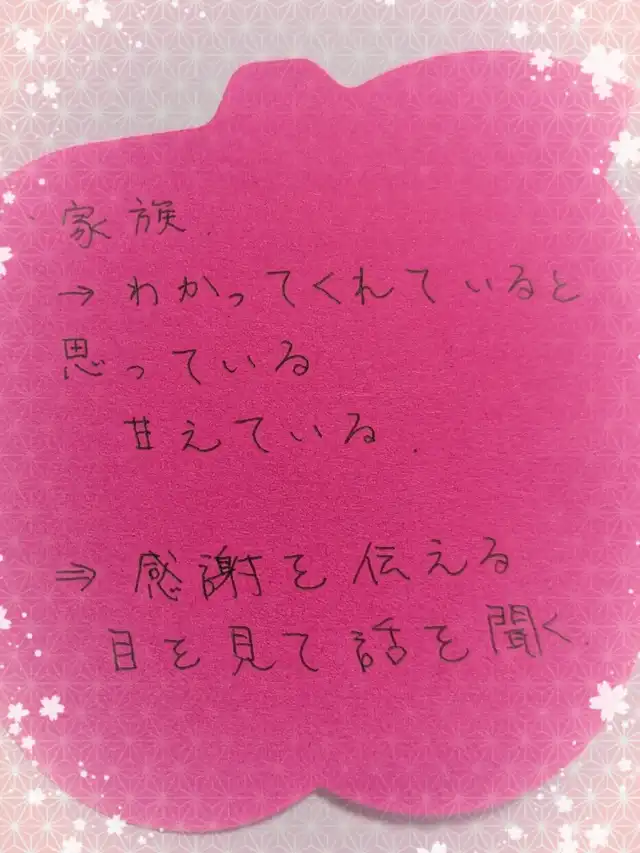 家族.
→ わかってくれていると
思っている
甘えている.
⇒ 感謝を伝える
目を見て話を聞く.